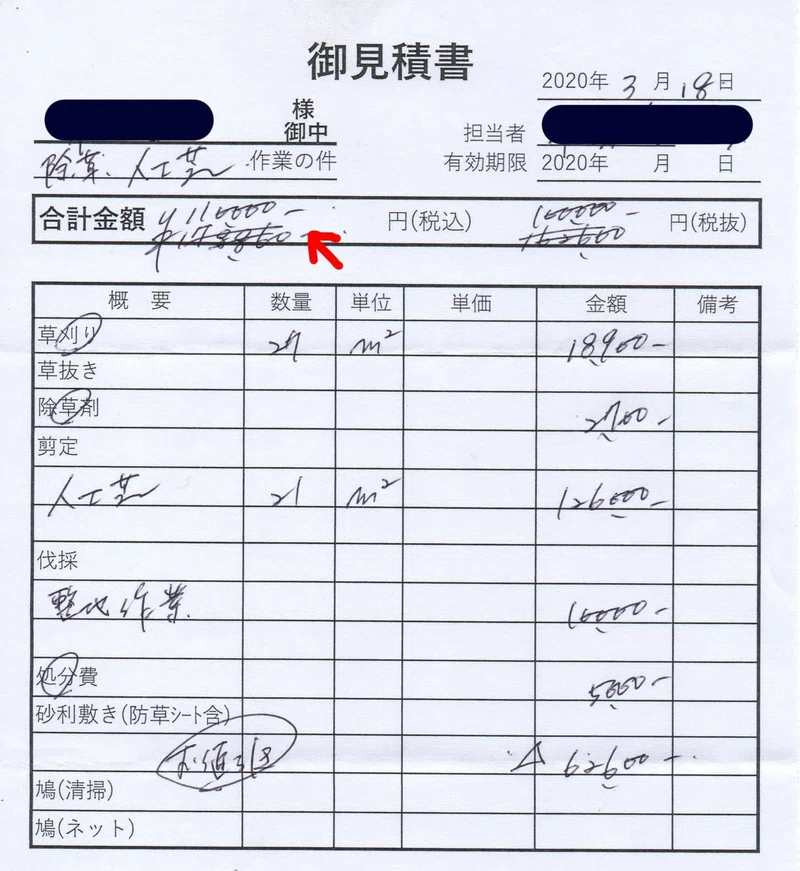 御見積書
2020年 3 月 18 日
様
御中
担当者
除草、人工芝 作業の件
有効期限 2020年 月 日
合計金額 ¥110000- 円(税込) 100000- 円(税抜)
¥178860- 162600
概 要 数量 単位 単価 金額 備考
草刈り 27 m² 18900-
草抜き
除草剤 2700-
剪定
人工芝 21 m² 126000-
伐採
整地作業 10000-
処分費 5000-
砂利敷き(防草シート含)
お値引き △ 62600-
鳩(清掃)
鳩(ネット)